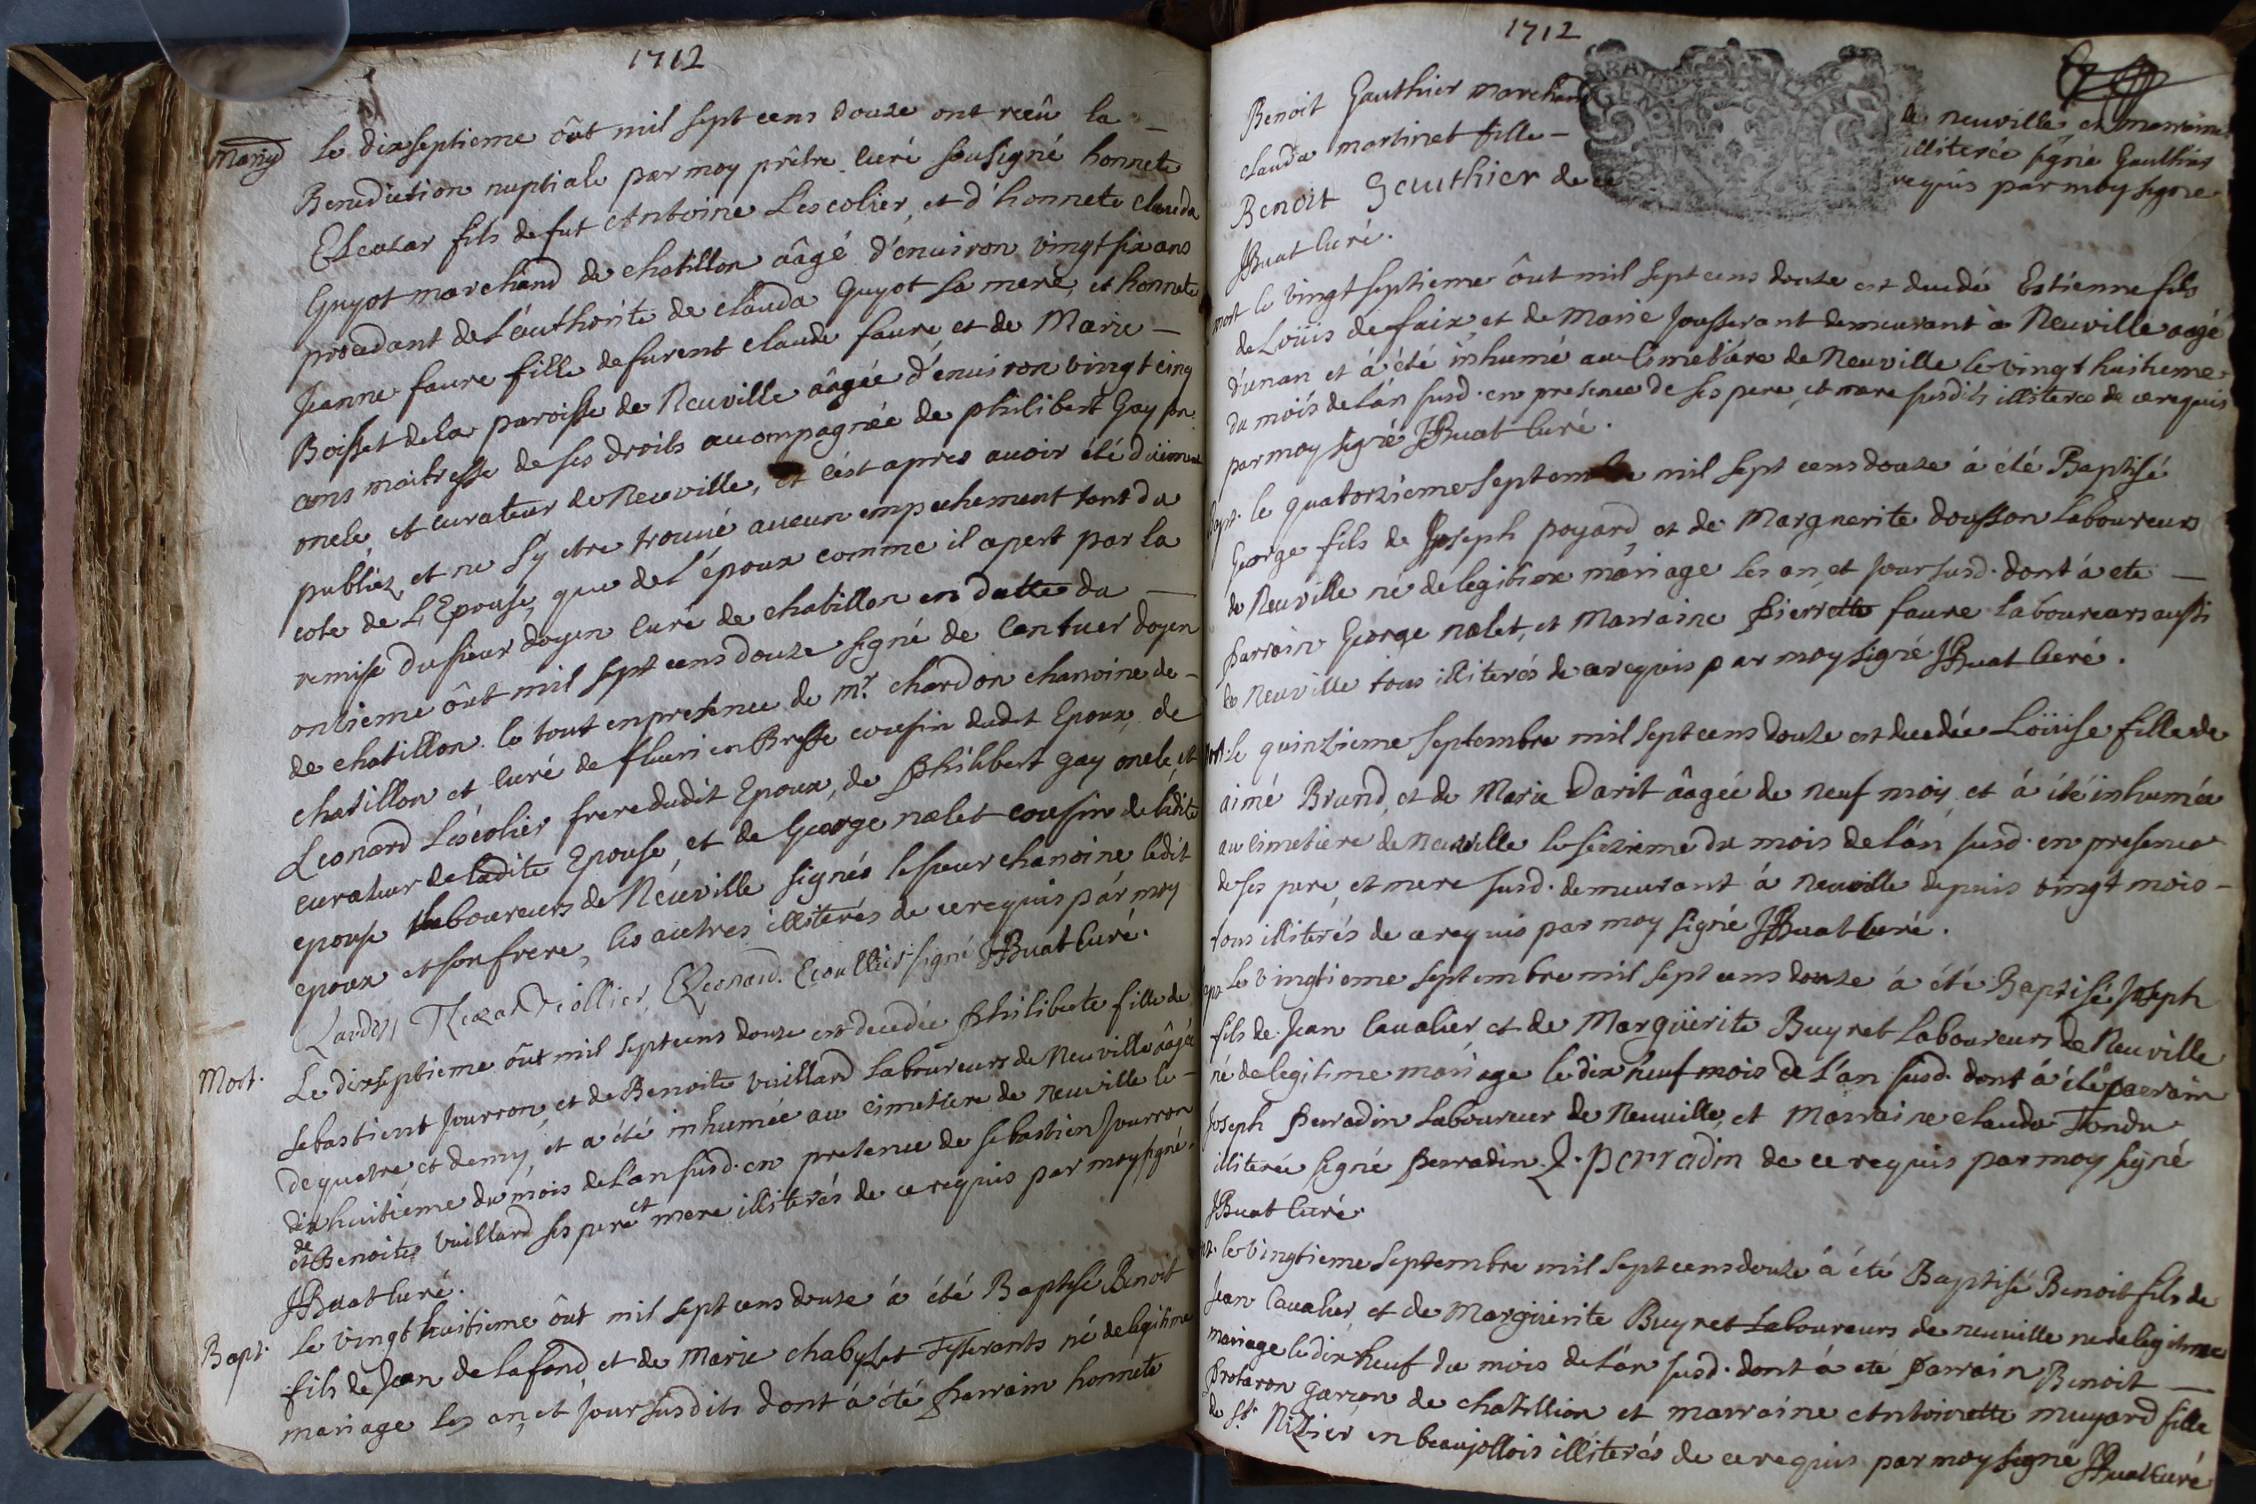 1712
Mariag
Le dixseptieme oût mil sept cens douze ont reçû la
Benediction nuptiale par moy prêtre curé sousigné honnete
Eleazar fils de fut Antoine Lescolier, et d'honnete clauda
Guyot marchand de chatillon âagé d'environ vingt six ans
procedant de l'authorité de clauda Guyot sa mere, et honnete
Jeanne faure fille defurent claude faure, et de Marie
Boisset de la paroisse de Neuville âagée d'environ vingt cinq
ans maitresse de ses droits accompagnée de philibert Gay son
oncle, et curateur de Neuville, et c'est apres avoir été düement
publiéz et ne s'y etre trouvé aucun empechement tant du
coté de L'Epouse, que de l'époux comme il apert par la
remise du sieur doyen curé de chatillon en datte du
onzieme oût mil sept cens douze signé de doyen
de chatillon. le tout en presence de mr. chardon chanoine de
chatillon et curé de fluiri en Bresse cousin dudit Epoux, de
Leonard Lescolier frere dudit Epoux, de Philibert gay oncle, et
curateur de ladite Epouse, et de George nalet cousin de ladite
epouse laboureurs de Neuville signés le sieur chanoine ledit
epoux et son frere, les autres illiterés de ce requis par moy
signé JBuat Curé.
Mort.
Le dixseptieme oût mil sept cens douze est decedée Philiberte fille de
sebastient Jourron, et de Benoite vuillard Laboureurs de Neuville âagée
de quatre, et demy, et a été inhumée au cimetiere de neuville le
dixhuitieme du mois de l'an susd. en presence de sebastien Jourron
et de Benoite vuillard ses pere et mere illiterés de ce requis par moy signé
JBuat Curé.
Bapt.
Le vingt huitieme oût mil sept cens douze á été Baptisé Benoit
fils de Jean de lafond, et de Marie chabylet Tisserants né de legitime
mariage les an, et jour susdits dont á été Parrain honnete
1712
Benoit Gauthier marchand de neuville, et marraine
clauda martinet fille illiterée signé Gauthier
Benoit Gauthier de ce requis par moy signé
JBuat Curé.
mort le vingt septieme oût mil sept cens douze est decedé Estienne fils
de Loüis defaix, et de Marie Jousserant demeurant à Neuville aagé
d'un an et á été inhumé au Cimetiére de Neuville le vingt huitieme
du moiś de l'án susd. en presence de ses pere, et mere susdits illiterés de ce requis
par moy signé JBuat Curé.
Bapt. le quatorzieme septembre mil sept cens douze á été Baptisé
George fils de Joseph poyard, et de Marguerite dousson Laboureurs
de Neuville né de legitime mariage les an, et jour susd. dont á eté
parrain George nalet, et Marraine Pierrette faure laboureurs aussi
de Neuville tous illiterés de ce requis par moy signé JBuat Curé.
Mort Le quinzieme septembre mil sept cens douze est decedée Loüise fille de
aimé Brand, et de Marie Darit âagée de neuf moiy et á été inhumée
au cimetiere de Neuville le seizieme du mois de l'án susd. en presence
de ses pere, et mere susd. demeurant á Neuville depuis vingt mois
tous illiterés de ce requis par moy signé JBuat Curé.
Bapt Le vingtieme septembre mil sept cens douze á été Baptisé Joseph
fils de Jean Cavalier, et de Margüerite Buyret Laboureurs de Neuville
né de legitime mariage le dix neuf mois de l'an susd. dont á été parrain
Joseph Perradin Laboureur de Neuville, et Marraine clauda Tondu
illiterée signé Perradin. J. Perradin de ce requis par moy signé
JBuat Curé.
Bapt. le vingtieme septembre mil sept cens douze á été Baptisé Benoit fils de
Jean Cavalier, et de Margüerite Buyret Laboureurs de neuville né de legitime
mariage le dix neuf du mois de l'án susd. dont á eté Parrain Benoit
garçon de chatillion et marraine Antoinette muyard fille
de St. Nizier en beaujollois illiterés de ce requis par moy signé JBuat Curé